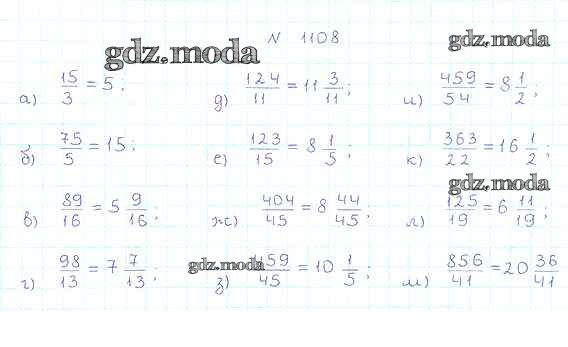 N 1108
gdz.moda
gdz.moda
а) 15/3 = 5; д) 124/11 = 11 3/11; и) 459/54 = 8 1/2;
б) 75/5 = 15; е) 123/15 = 8 1/5; к) 363/22 = 16 1/2;
gdz.moda
в) 89/16 = 5 9/16; ж) 404/45 = 8 44/45; л) 125/19 = 6 11/19;
gdz.moda
г) 98/13 = 7 7/13; з) 459/45 = 10 1/5; м) 856/41 = 20 36/41